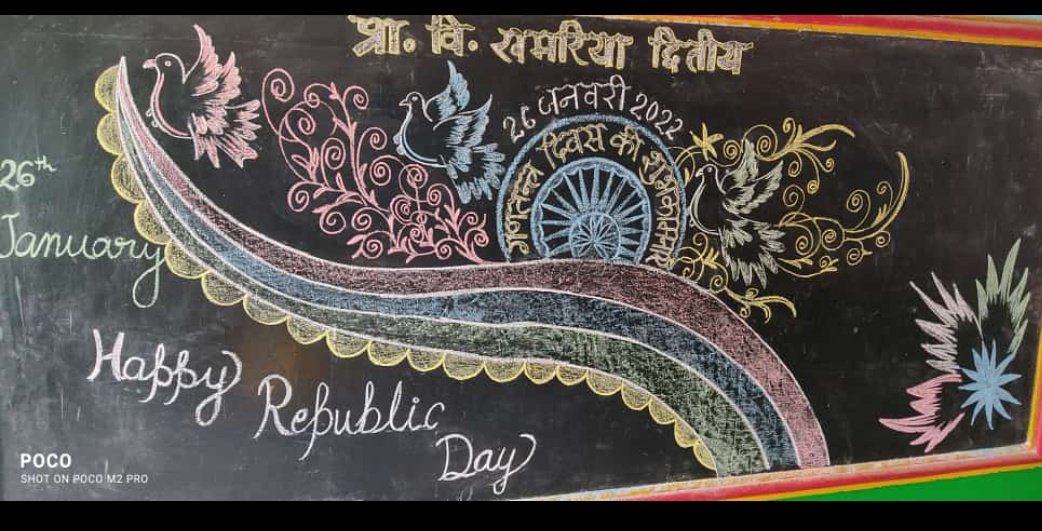 प्रा. वि. खमरिया द्वितीय
26 जनवरी 2022
गणतन्त्र दिवस की शुभकामनाएं
26th
January
Happy
Republic
Day
POCO
SHOT ON POCO M2 PRO